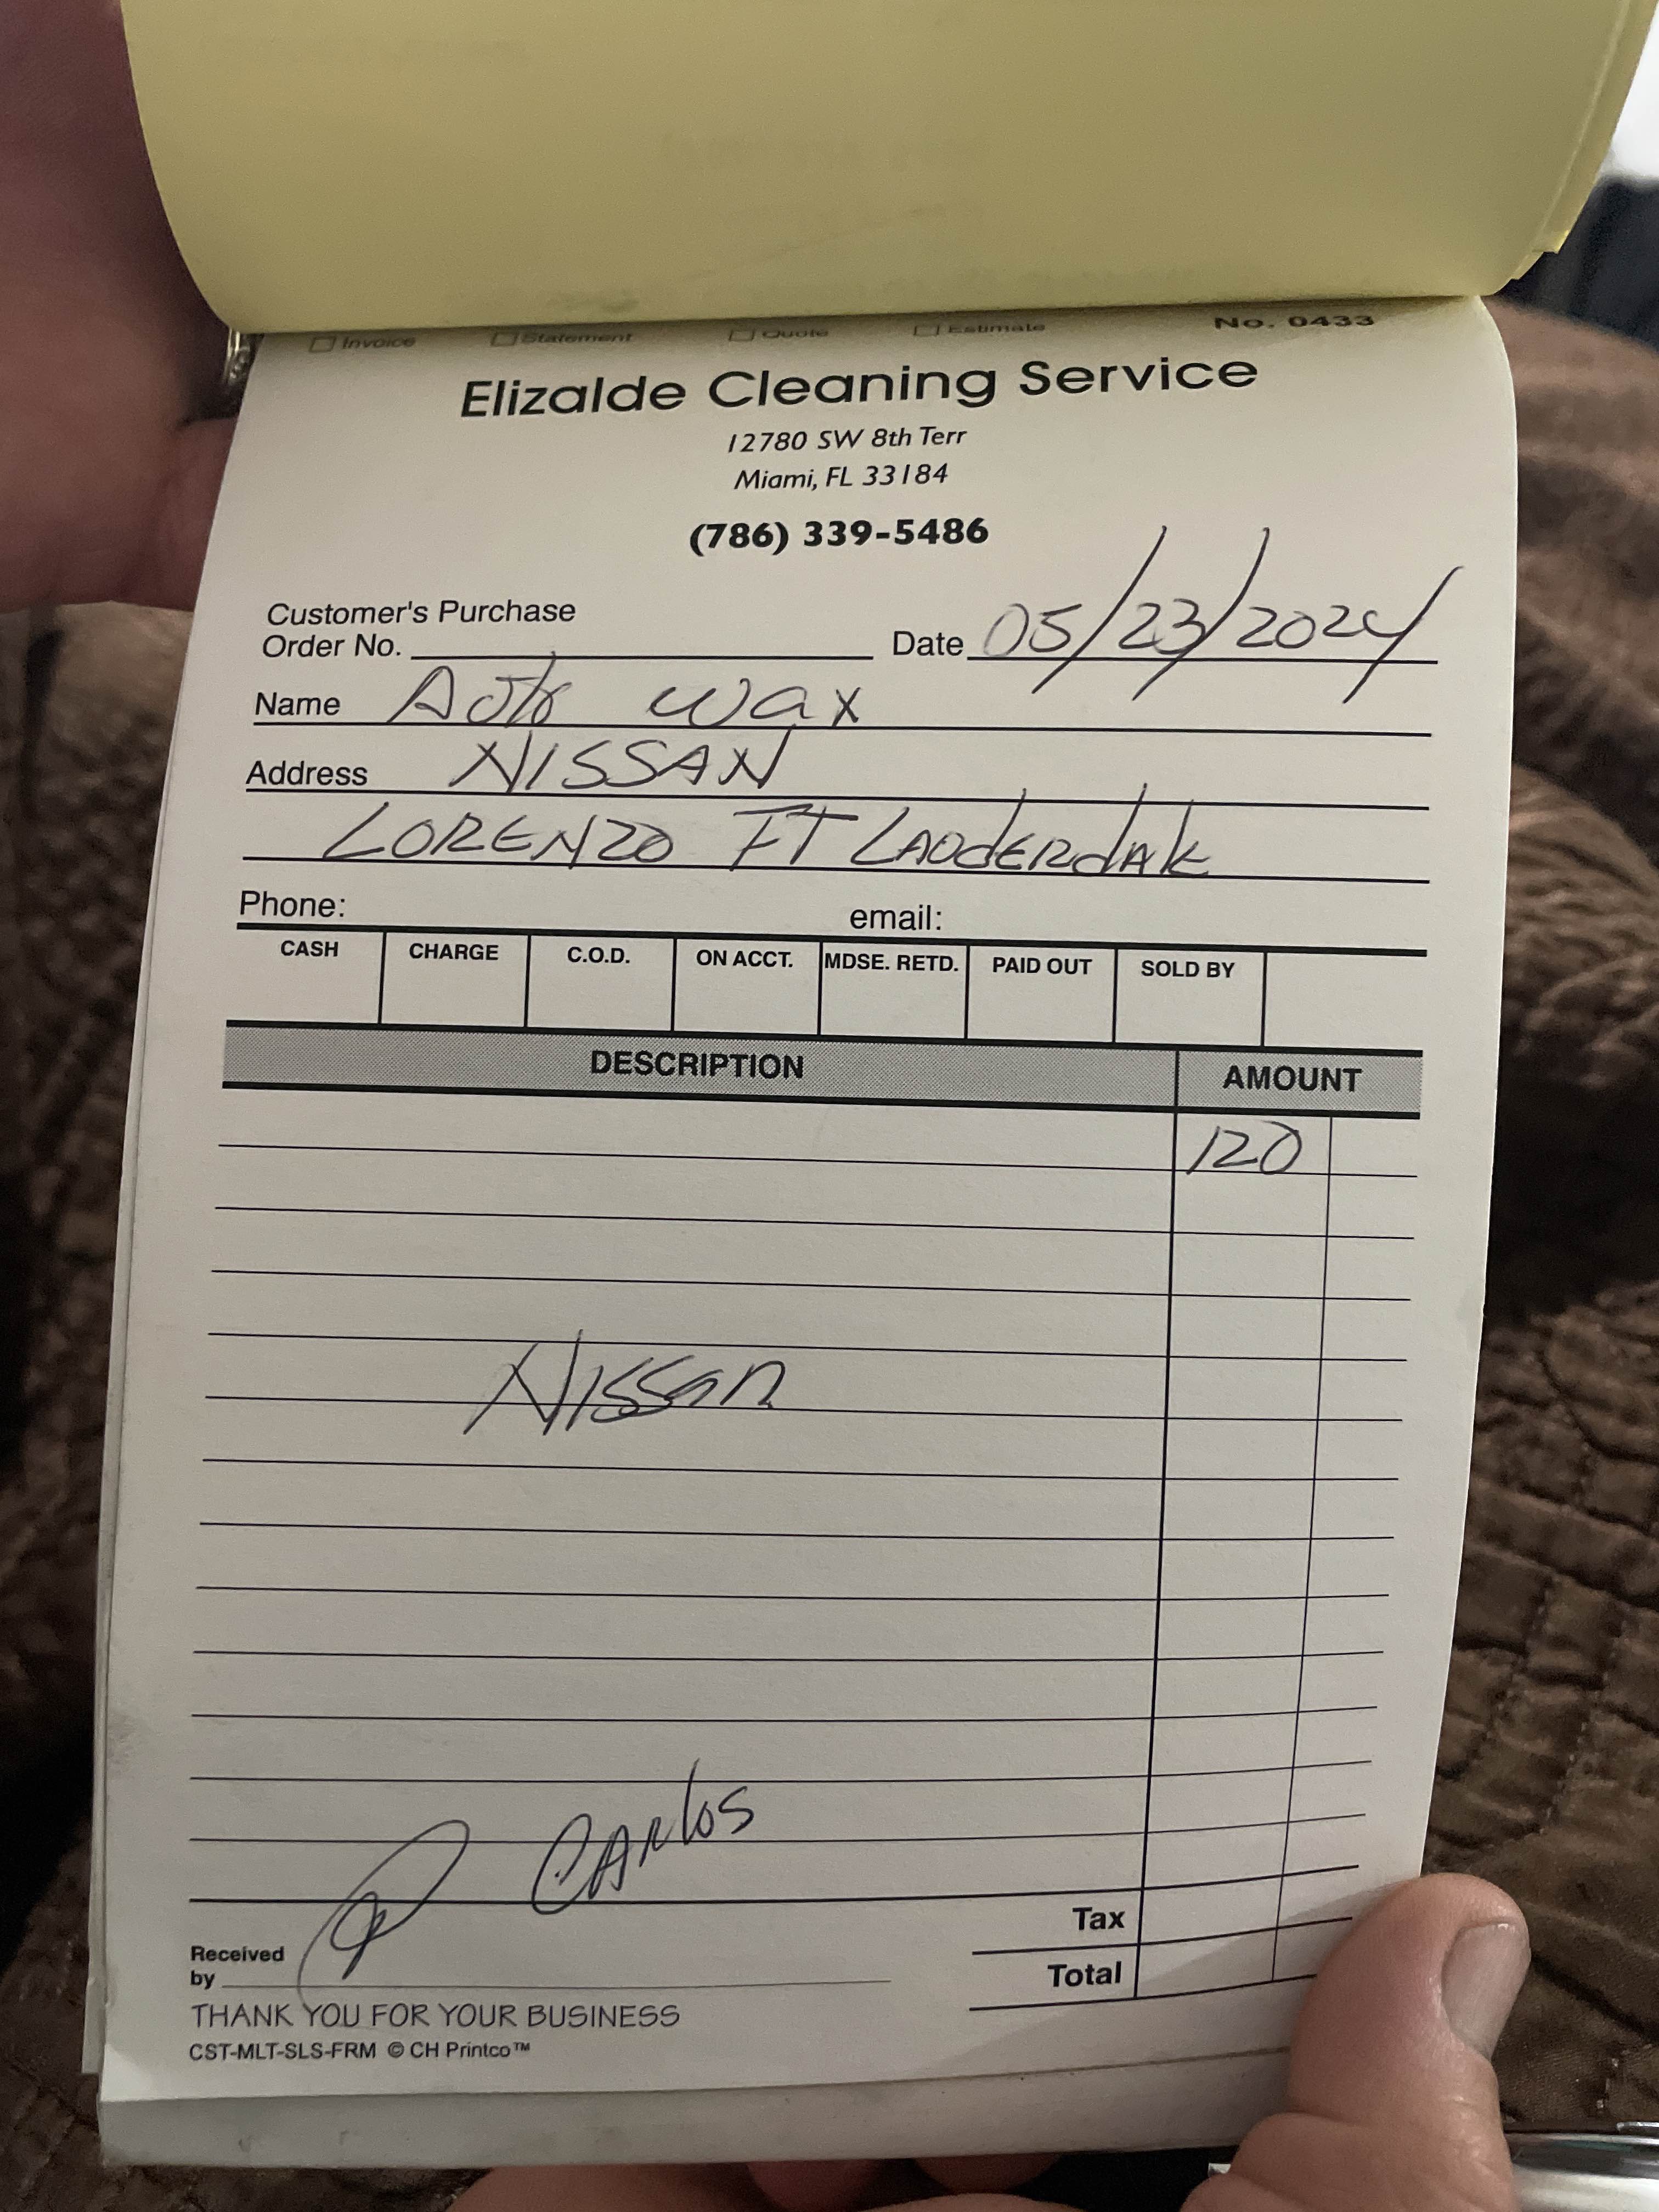 Invoice Statement Quote Estimate No. 0433
Elizalde Cleaning Service
12780 SW 8th Terr
Miami, FL 33184
(786) 339-5486
Customer's Purchase
Order No. Date 05/23/2024
Name Auto wax
Address NISSAN
LORENZO FT LAUDERdAlE
Phone: email:
CASH CHARGE C.O.D. ON ACCT. MDSE. RETD. PAID OUT SOLD BY
DESCRIPTION AMOUNT
120
Nissan
CARlos
Tax
Received
by Total
THANK YOU FOR YOUR BUSINESS
CST-MLT-SLS-FRM © CH Printco™